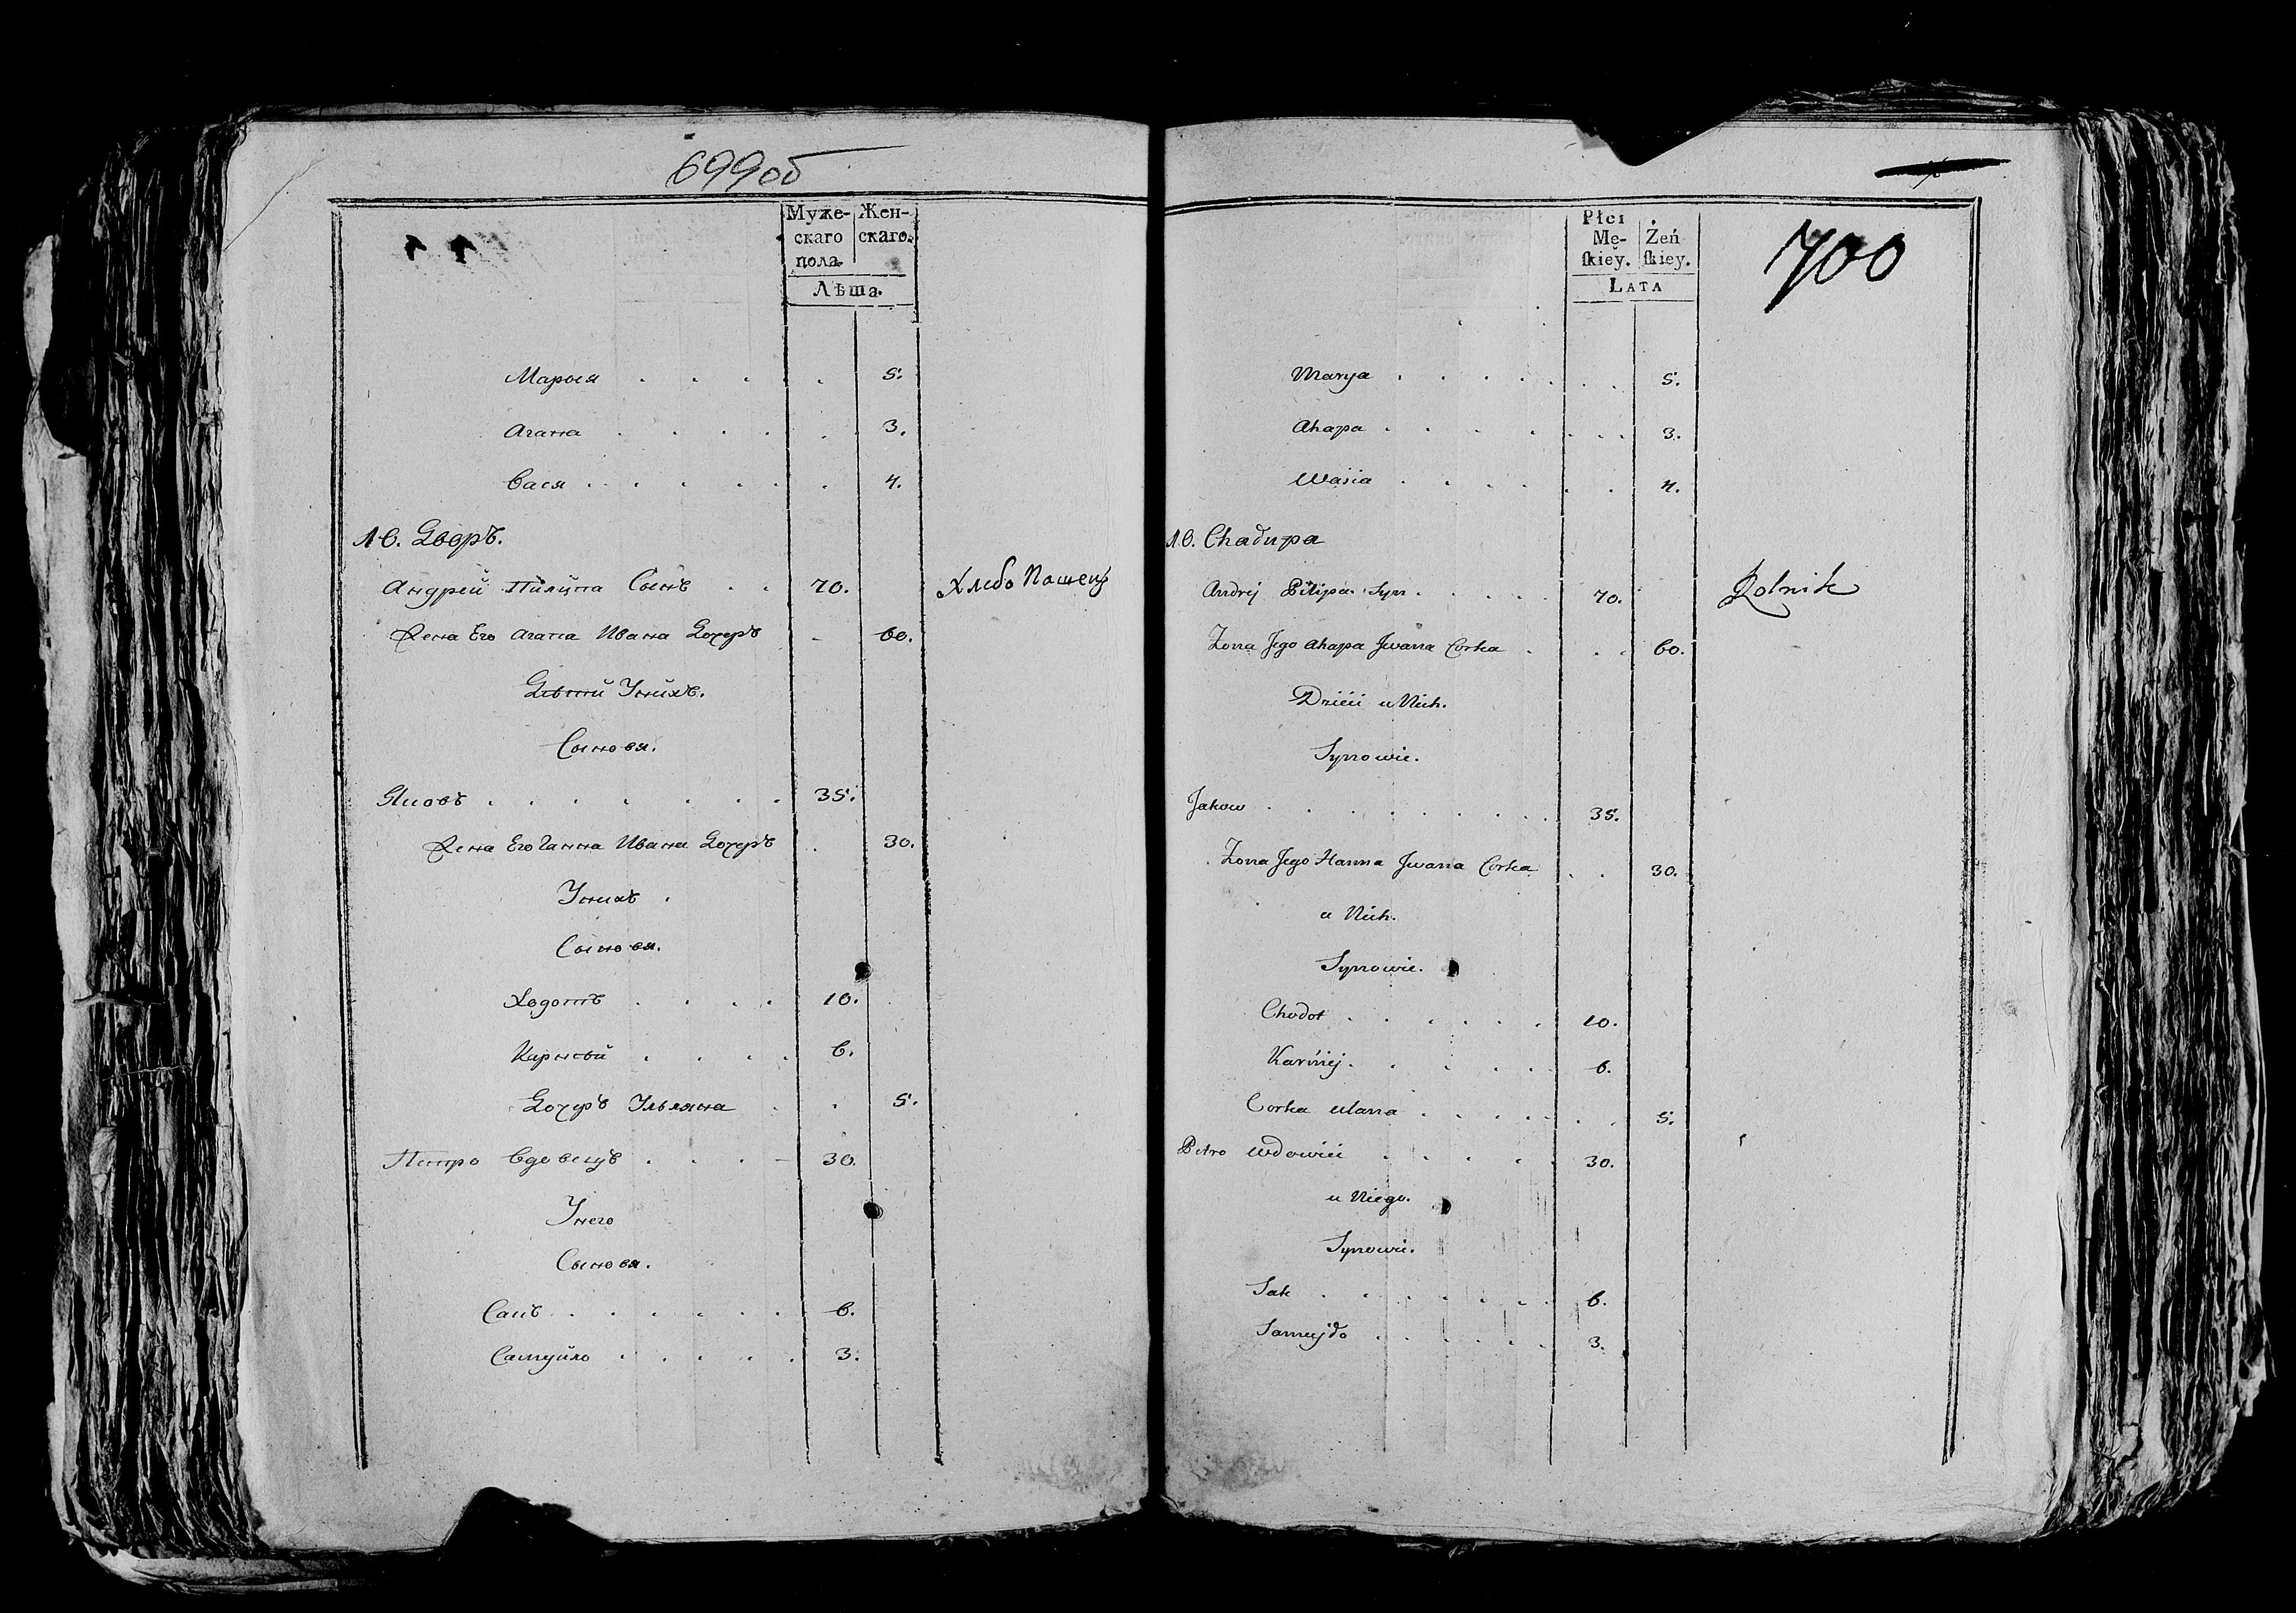 699об
Муже- Жен-
скаго скаго.
пола.
Лѣта.
Марыя . . . . . 5.
Агапа . . . . . 3.
Вася . . . . . . 4.
10. Дворъ.
Андрей Пилипа Сынъ . . 70. Хлебо Пашецъ
Жена Его Агапа Ивана Дочеръ - 60.
Дѣтий Унихъ.
Сыновя.
Яковъ . . . . . . . . 35.
Жена Его Ганна Ивана Дочеръ . 30.
Унихъ .
Сыновя.
Ходотъ . . . . 10.
Карнѣй . . . . 6.
Дочеръ Ульяна . . 5.
Петро Вдовецъ . . . - 30.
Унего
Сыновя.
Сакъ . . . . . . 6.
Самуйло . . . . . 3.
700
Płci
Mę- Żeń
ſkiey. ſkiey.
LATA
Marya . . . . . . . 5.
Ahapa . . . . . . . 3.
Wasia . . . . . . 4.
10. Chałupa
Andrej Pilipa Syn . . . . . 70. Rolnik
Żona Jego Ahapa Jwana Corka . . . 60.
Dzieci u Nich.
Synowie.
Jakow . . . . . . . . . 35.
Żona Jego Hanna Jwana Corka . . 30.
u Nich.
Synowie.
Chodot . . . . . . 10.
Karniej . . . . . . 6.
Corka Ulana . . . . . . . 5.
Petro Wdowiec . . . . . 30.
u Niego.
Synowie.
Sak . . . . . . . 6.
Samujło . . . . . . 3.